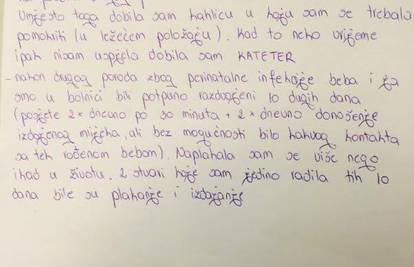 Umjesto toga dobila sam kahlicu u koju sam se trebala
pomokriti (u ležećem položaju). Kad to neko vrijeme
ipak nisam uspjela dobila sam KATETER
- nakon dugog poroda zbog perinatalne infekcije beba i ja
smo u bolnici bili potpuno razdvojeni 10 dugih dana
(posjete 2x dnevno po 30 minuta + 2x dnevno donošenje
izdojenog mlijeka, ali bez mogućnosti bilo kakvog kontakta
sa tek rođenom bebom). Naplakala sam se više nego
ikad u životu. 2 stvari koje sam jedino radila tih 10
dana bile su plakanje i izdajanje